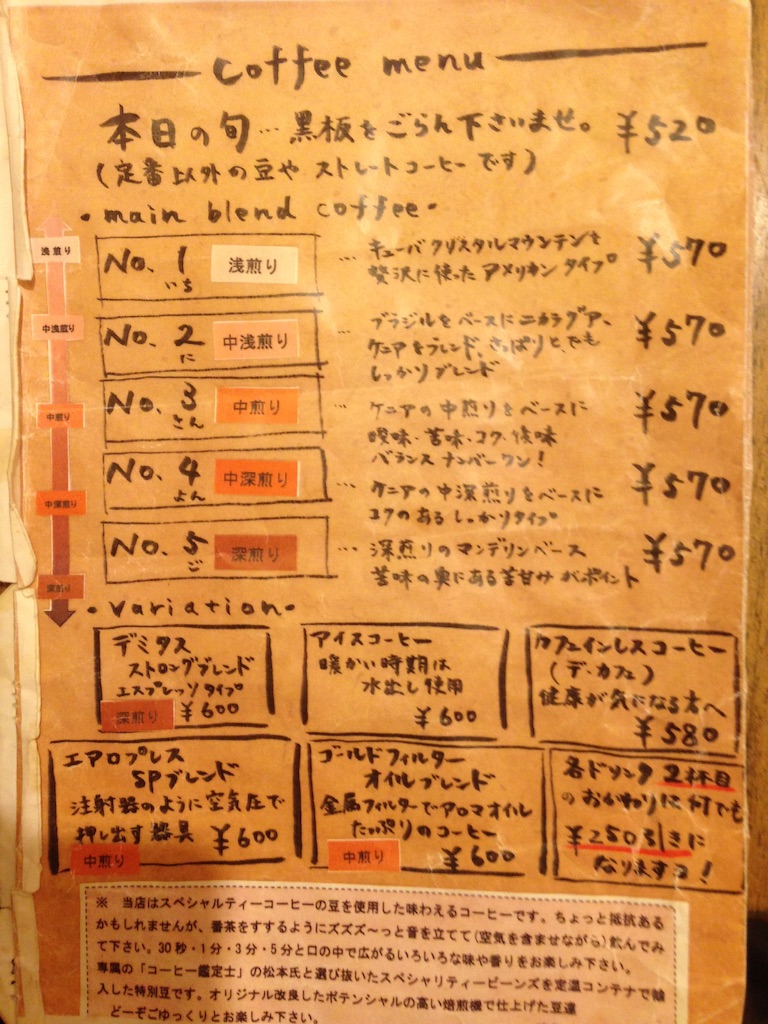 coffee menu
本日の旬…黒板をごらん下さいませ。 ¥520
(定番以外の豆や ストレートコーヒーです)
・main blend coffee・
浅煎り
中浅煎り
中煎り
中深煎り
深煎り
No.1 浅煎り
いち
… キューバ クリスタルマウンテンを
贅沢に使った アメリカン タイプ
¥570
No.2 中浅煎り
に
… ブラジルをベースにニカラグア、
ケニアをブレンド、さっぱりと、でも
しっかりブレンド
¥570
No.3 中煎り
さん
… ケニアの中煎りをベースに
酸味・苦味・コク・後味
バランス ナンバーワン!
¥570
No.4 中深煎り
よん
… ケニアの中深煎りをベースに
コクのある しっかりタイプ
¥570
No.5 深煎り
ご
… 深煎りのマンデリンベース
苦味の奥にある苦甘みがポイント
¥570
・variation・
デミタス
ストロングブレンド
エスプレッソタイプ
深煎り ¥600
アイスコーヒー
暖かい時期は
水出し使用
¥600
カフェインレスコーヒー
(デ・カフェ)
健康が気になる方へ
¥580
エアロプレス
SPブレンド
注射器のように空気圧で
押し出す器具 ¥600
中煎り
ゴールドフィルター
オイルブレンド
金属フィルターでアロマオイル
たっぷりのコーヒー
中煎り ¥600
各ドリンク2杯目
のおかわりは何でも
¥250引きに
なりますヨ!
※ 当店はスペシャルティーコーヒーの豆を使用した味わえるコーヒーです。ちょっと抵抗ある
かもしれませんが、番茶をすするようにズズズ〜っと音を立てて(空気を含ませながら)飲んでみ
て下さい。30秒・1分・3分・5分と口の中で広がるいろいろな味や香りをお楽しみ下さい。
専属の「コーヒー鑑定士」の松本氏と選び抜いたスペシャリティービーンズを定温コンテナで輸
入した特別豆です。オリジナル改良したポテンシャルの高い焙煎機で仕上げた豆達
どーぞごゆっくりとお楽しみ下さい。